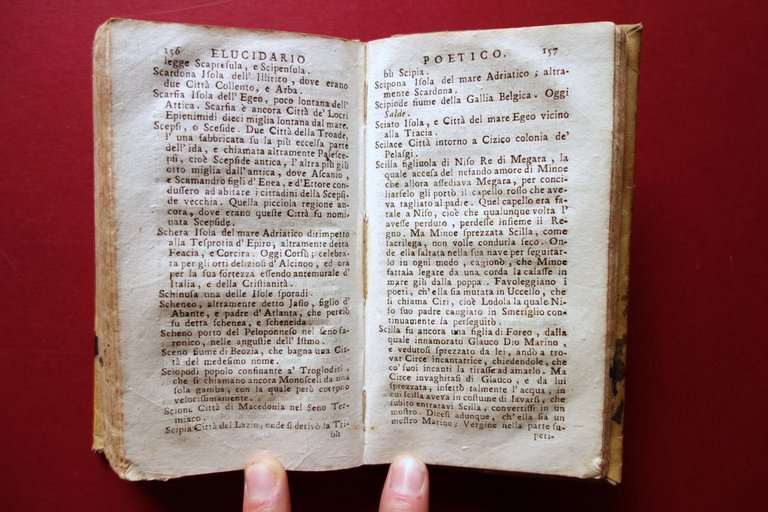 156 ELUCIDARIO
legge Scapresula, e Scipensula.
Scardona Isola dell' Illirico, dove erano
due Città Collento, e Arba.
Scarfia Isola dell' Egeo, poco lontana dell'
Attica. Scarfia è ancora Città de' Locri
Epienimidi dieci miglia lontana dal mare.
Scepsi, o Scefide. Due Città della Troade,
l' una fabbricata su la più eccelsa parte
dell' ida, e chiamata altramente Palescep-
si, cioè Scepside antica, l' altra più giù
otto miglia dall' antica, dove Ascanio,
e Scamandro figli d' Enea, e d' Ettore con-
dussero ad abitare i cittadini della Scepsi-
de vecchia. Quella picciola regione an-
cora, dove erano queste Città fu nomi-
nata Scepside.
Schera Isola del mare Adriatico dirimpetto
alla Tesprotia d' Epiro, altramente detta
Feacia, e Corcira. Oggi Corfù; celebra-
ta per gli orti deliziosi d' Alcinoo, ed ora
per la sua fortezza essendo antemurale d'
Italia, e della Cristianità.
Schinusa una delle Isole sporadi.
Scheneo, altramente detto Jasio, figlio d'
Abante, e padre d' Atlanta, che perciò
fu detta schenea, e scheneida.
Scheno porto del Peloponneso nel seno sa-
ronico, nelle angustie dell' Istmo.
Sceno fiume di Beozia, che bagna una Cit-
tà del medesimo nome.
Sciopodi popolo confinante a' Trogloditi,
che si chiamano ancora Monosceli da una
sola gamba, con la quale però corrono
velocissimamente.
Scione Città di Macedonia nel Seno Ter-
miaco.
Scipia Città del Lazio, onde si derivò la Tri-
bù
POETICO. 157
bù Scipia.
Scipona Isola del mare Adriatico, altra-
mente Scardona.
Scipiode fiume della Gallia Belgica. Oggi
Salde.
Sciato Isola, e Città del mare Egeo vicino
alla Tracia.
Scilace Città intorno a Cizico colonia de'
Pelasgi.
Scilla figliuola di Niso Re di Megara, la
quale accesa del nefando amore di Minoe
che allora assediava Megara, per conci-
liarselo gli portò il capello rosso che ave-
va tagliato al padre. Quel capello era fa-
tale a Niso, cioè che qualunque volta l'
avesse perduto, perdesse insieme il Re-
gno. Ma Minoe sprezzata Scilla, come
sacrilega, non volle condurla seco. On-
de ella saltata nella sua nave per seguitar-
lo in ogni modo, cagionò, che Minoe
fattala legare da una corda la calasse in
mare giù dalla poppa. Favoleggiano i
poeti, ch' ella sia mutata in Uccello, che
si chiama Ciri, cioè Lodola la quale Ni-
so suo padre cangiato in Smeriglio con-
tinuamente la perseguitò.
Scilla fu ancora una figlia di Foreo, dalla
quale innamorato Glauco Dio Marino,
e vedutosi sprezzato da lei, andò a tro-
var Circe incantatrice, chiedendole, che
co' suoi incanti la tirasse ad amarlo. Ma
Circe invaghitasi di Glauco, e da lui
sprezzata, infettò talmente l' acqua, in
cui scilla aveva in costume di lavarsi, che
subito entratavi Scilla, convertissi in un
mostro. Dicesi adunque, ch' ella sia un
mostro Marino, Vergine nella parte su-
peri-